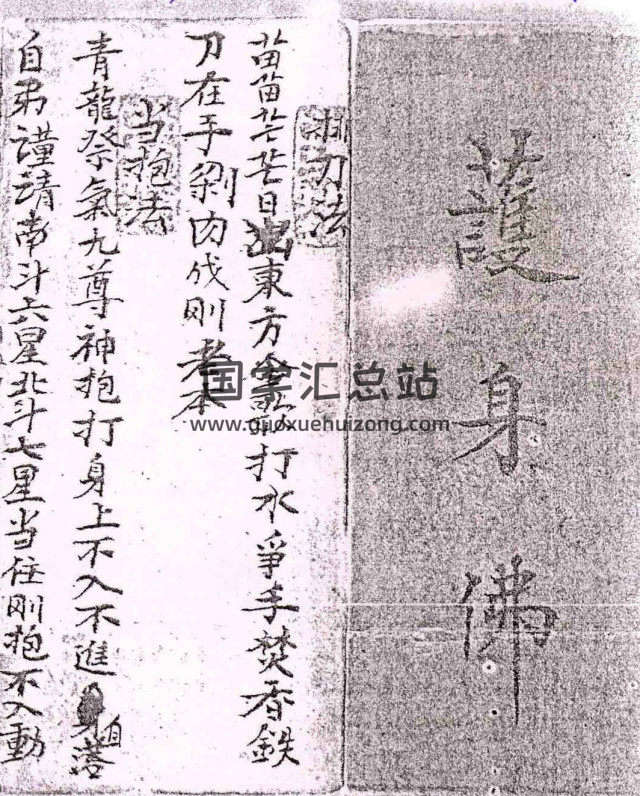 護身佛
刀法
苗苗茫茫日出東方打水爭手焚香鉄
刀在手剁肉伐剛老本
当抱法
青龍祭氣九尊神抱打身上不入不進自落
自弟謹請南斗六星北斗七星当住剛抱不入動
国学汇总站
www.guoxuehuizong.com